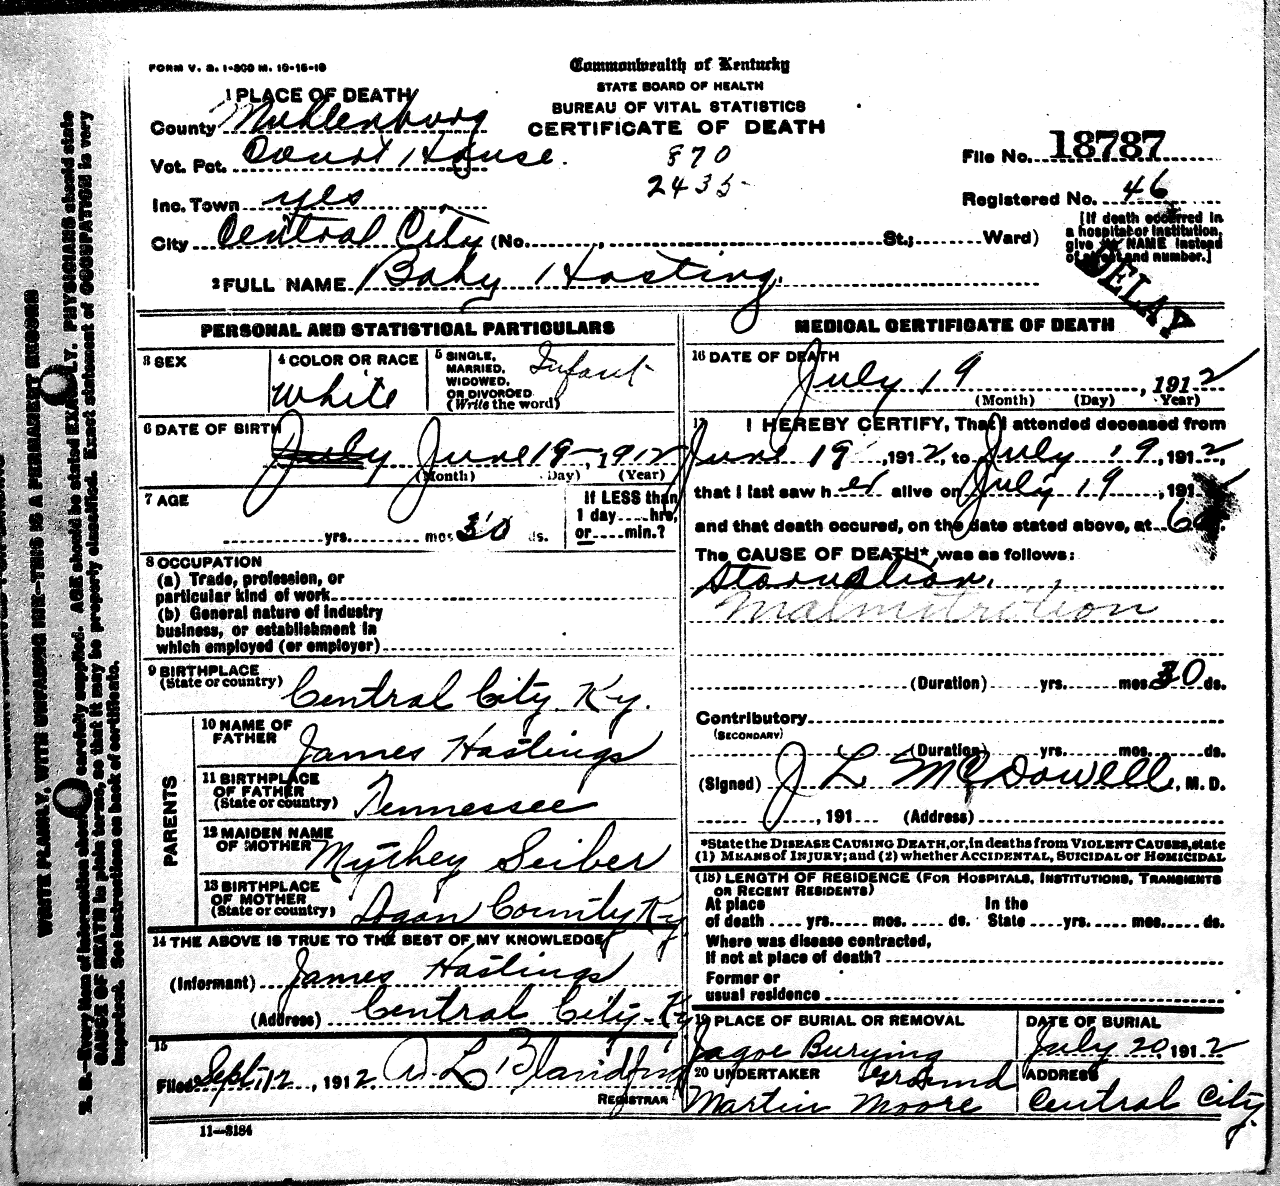 FORM V. S. 1-300 M. 10-16-10
Commonwealth of Kentucky
STATE BOARD OF HEALTH
BUREAU OF VITAL STATISTICS
CERTIFICATE OF DEATH
1 PLACE OF DEATH
County Muhlenburg
Vot. Pct. Court House.
870
2435
Inc. Town yes
City Central City (No. , St.; Ward)
File No. 18787
Registered No. 46
[If death occurred in a hospital or institution, give its NAME instead of street and number.]
DELAY
2 FULL NAME Baby Hasting.
PERSONAL AND STATISTICAL PARTICULARS
3 SEX
4 COLOR OR RACE
White
5 SINGLE, MARRIED, WIDOWED, OR DIVORCED (Write the word)
Infant
6 DATE OF BIRTH
July June 19 , 1912
(Month) (Day) (Year)
7 AGE
yrs. mos. 30 ds.
If LESS than 1 day hrs, or min.?
8 OCCUPATION
(a) Trade, profession, or
particular kind of work
(b) General nature of industry
business, or establishment in
which employed (or employer)
9 BIRTHPLACE
(State or country)
Central City Ky.
PARENTS
10 NAME OF FATHER
James Hastings
11 BIRTHPLACE OF FATHER
(State or country)
Tennessee
12 MAIDEN NAME OF MOTHER
Mythey Seiber
13 BIRTHPLACE OF MOTHER
(State or country)
Logan County Ky
14 THE ABOVE IS TRUE TO THE BEST OF MY KNOWLEDGE
(Informant) James Hastings
(Address) Central City Ky
15
Filed Sept. 12, 1912 D. L. Blandford
REGISTRAR
11—3184
MEDICAL CERTIFICATE OF DEATH
16 DATE OF DEATH
July 19 , 1912
(Month) (Day) Year)
17 I HEREBY CERTIFY, That I attended deceased from
June 19 , 1912, to July 19, 1912,
that I last saw her alive on July 19 , 191
and that death occured, on the date stated above, at 6
The CAUSE OF DEATH*, was as follows:
Starvation.
Malnutrition
(Duration) yrs. mos. 30 ds.
Contributory
(SECONDARY)
(Duration) yrs. mos. ds.
(Signed) J L McDowell, M. D.
, 191 (Address)
*State the DISEASE CAUSING DEATH, or, in deaths from VIOLENT CAUSES, state
(1) MEANS OF INJURY; and (2) whether ACCIDENTAL, SUICIDAL or HOMICIDAL
(18) LENGTH OF RESIDENCE (FOR HOSPITALS, INSTITUTIONS, TRANSIENTS
OR RECENT RESIDENTS)
At place In the
of death yrs. mos. ds. State yrs. mos. ds.
Where was disease contracted,
If not at place of death?
Former or
usual residence
19 PLACE OF BURIAL OR REMOVAL
Jagoe Burying Ground
DATE OF BURIAL
July 20, 1912
20 UNDERTAKER
Martin Moore
ADDRESS
Central City.
WRITE PLAINLY, WITH UNFADING INK—THIS IS A PERMANENT RECORD
N. B.—Every item of information should be carefully supplied. AGE should be stated EXACTLY. PHYSICIANS should state
CAUSE OF DEATH in plain terms, so that it may be properly classified. Exact statement of OCCUPATION is very
important. See instructions on back of certificate.